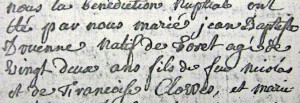 nous la benediction nuptial ont
été par nous marié jean Baptiste
Drienne natif de Foret agé de
vingt deux ans fils de feu nicolas
et de Francoise Closses, et marie